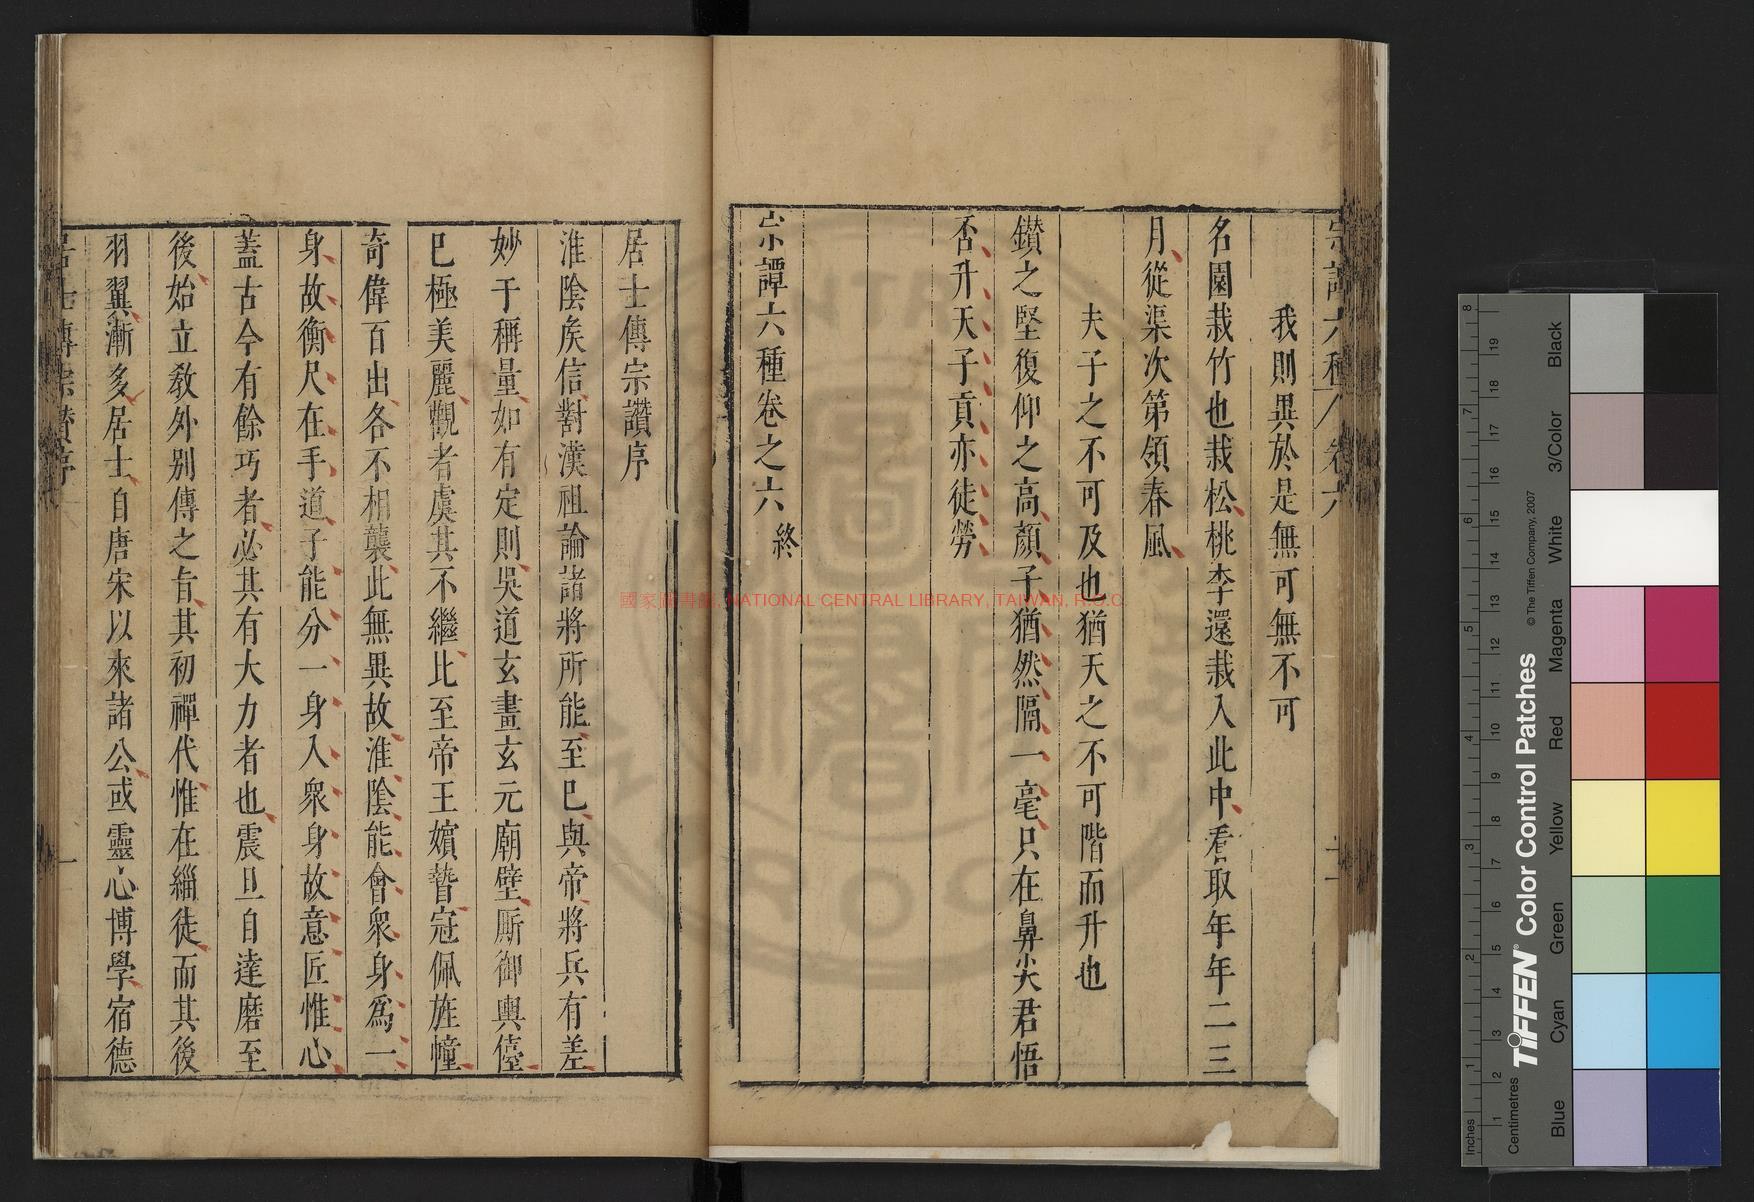 我則異於是無可無不可
名園栽竹也栽松桃李還栽入此中看取年年二三
月從渠次第領春風
夫子之不可及也猶天之不可階而升也
鑚之堅復仰之高顏子猶然隔一毫只在鼻尖君悟
否升天子貢亦徒勞
宗譚六種卷之六 終
居士傳宗讚序
淮陰矦信對漢祖論諸將所能至巳與帝將兵有差
妙于稱量如有定則吳道玄畫玄元廟壁厮御輿儓
巳極美麗觀者虞其不繼比至帝王嬪瞽冠佩旌幢
奇偉百出各不相襲此無異故淮陰能會衆身爲一
身故衡尺在手道子能分一身入衆身故意匠惟心
蓋古今有餘巧者必其有大力者也震旦自達磨至
後始立教外別傳之旨其初禪代惟在緇徒而其後
羽翼漸多居士自唐宋以來諸公或靈心博學宿德
國家圖書館, NATIONAL CENTRAL LIBRARY, TAIWAN, R.O.C
TIFFEN® Color Control Patches
© The Tiffen Company, 2007
Inches
Centimetres
Blue
Cyan
Green
Yellow
Red
Magenta
White
3/Color
Black